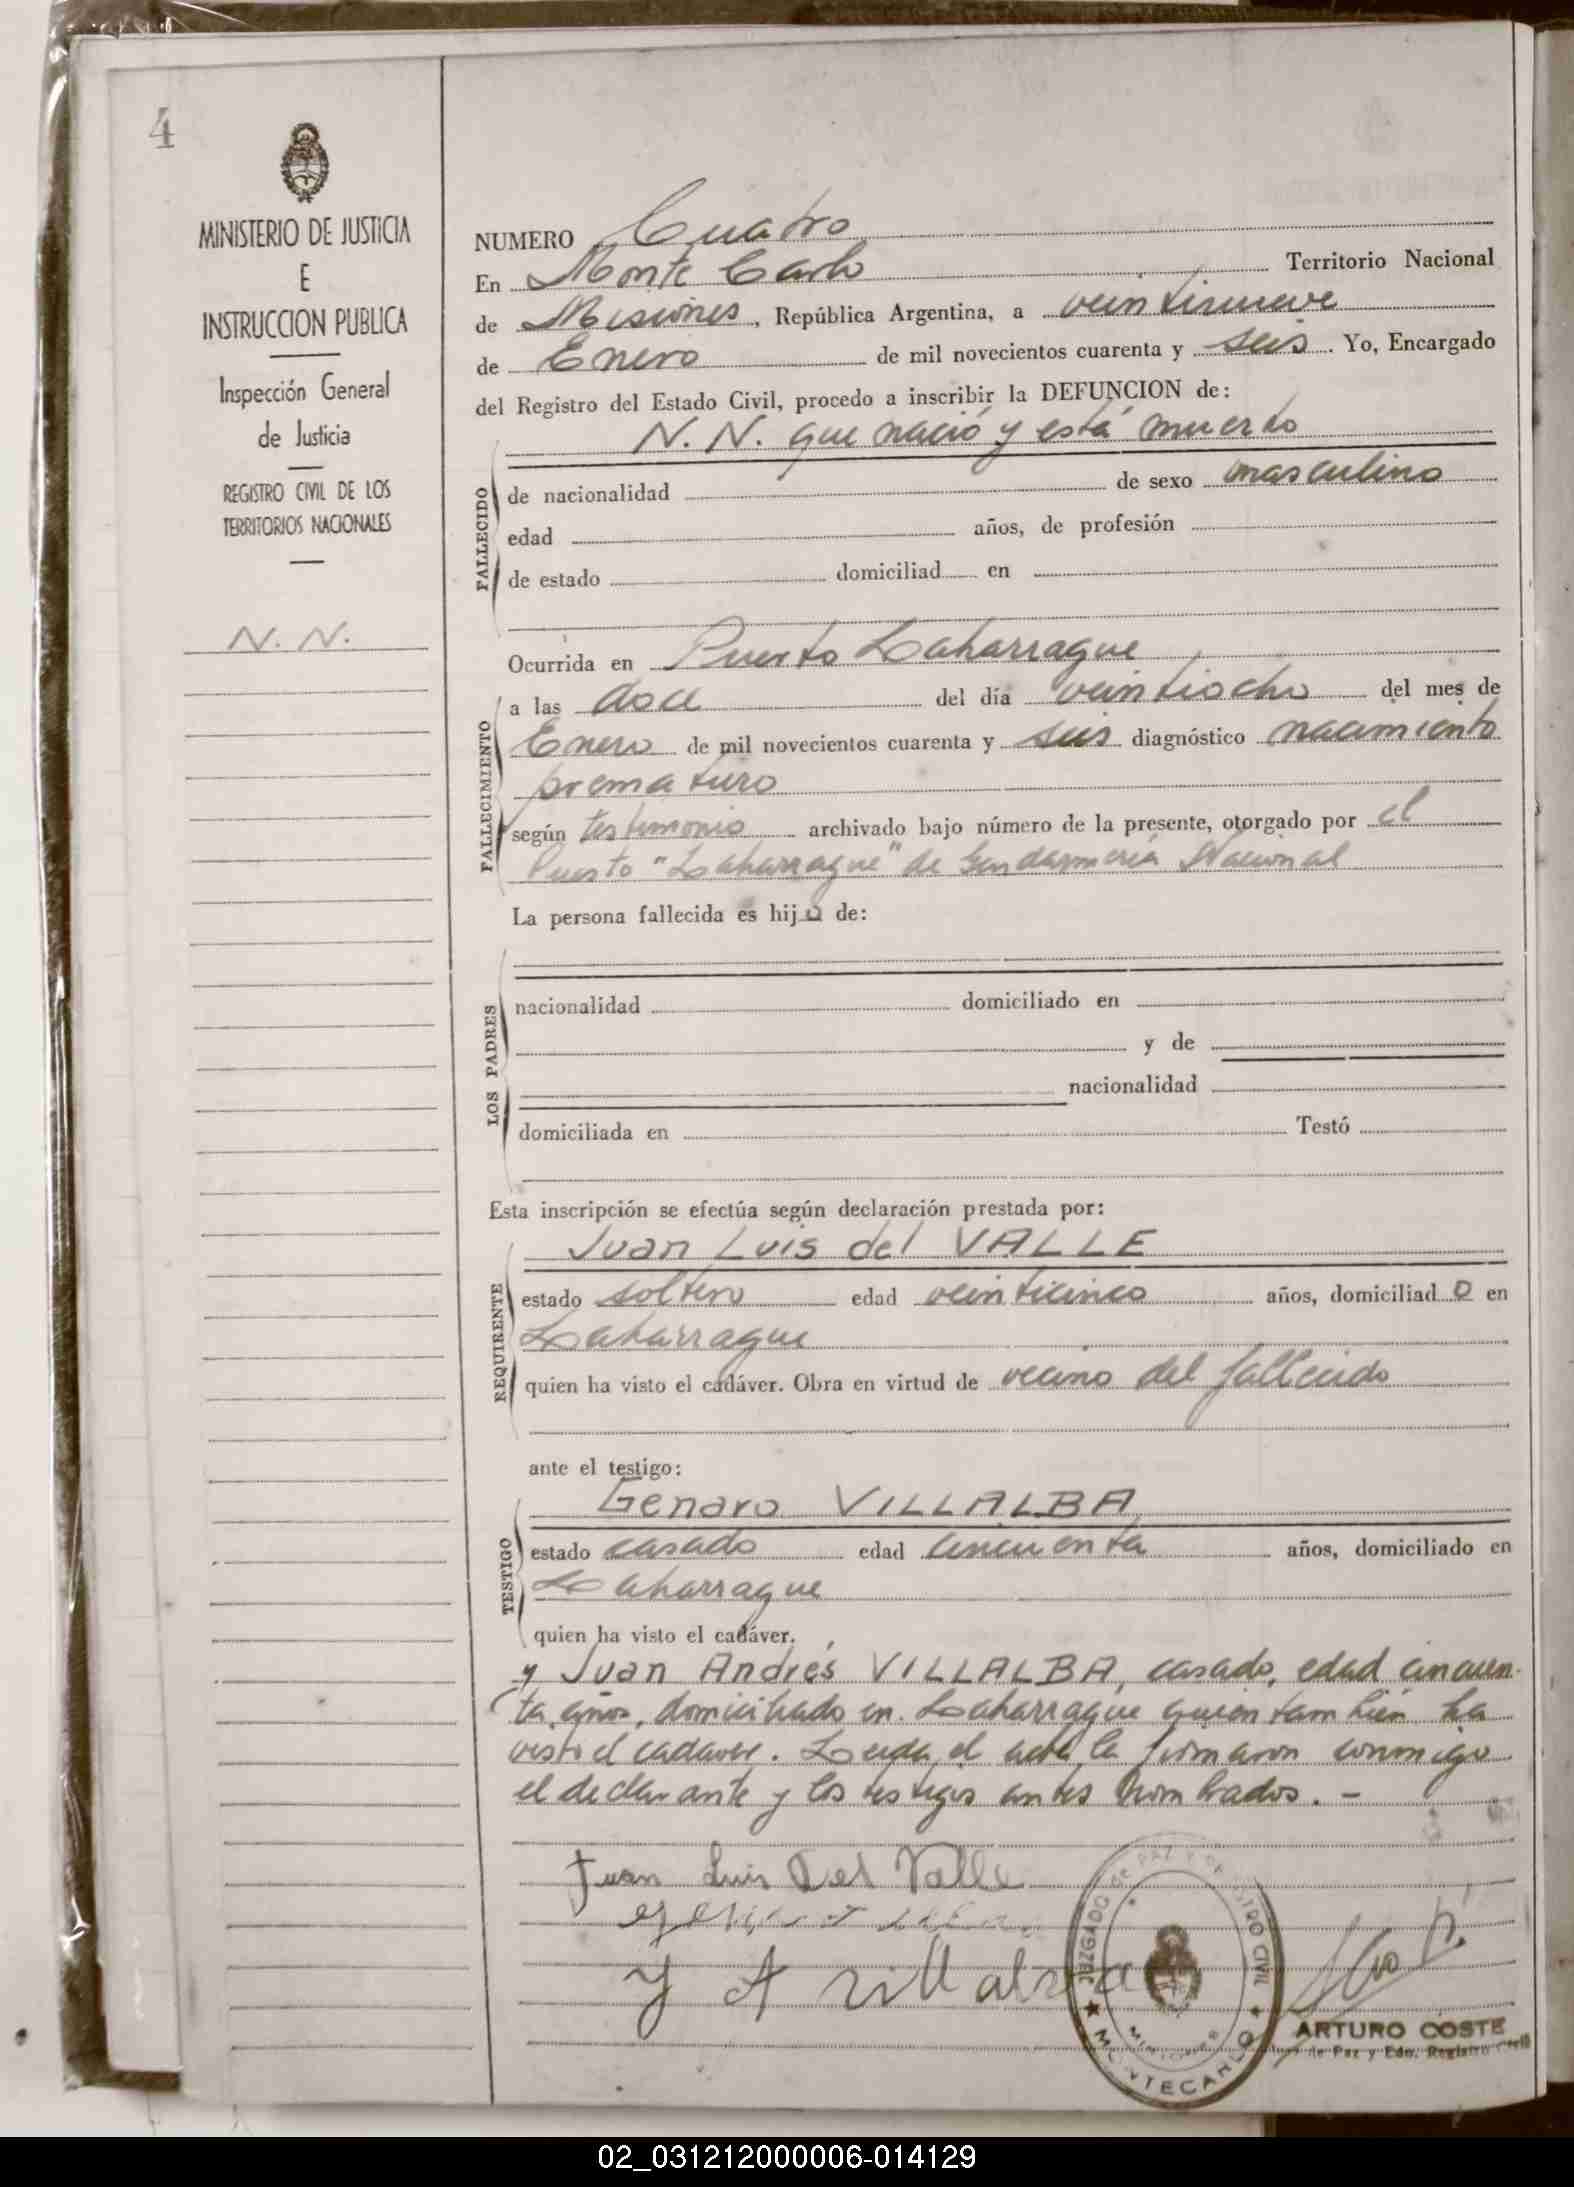 4
MINISTERIO DE JUSTICIA
E
INSTRUCCION PUBLICA
Inspección General
de Justicia
REGISTRO CIVIL DE LOS
TERRITORIOS NACIONALES
N. N.
NUMERO Cuatro
En Monte Carlo Territorio Nacional
de Misiones, República Argentina, a veintinueve
de Enero de mil novecientos cuarenta y seis. Yo, Encargado
del Registro del Estado Civil, procedo a inscribir la DEFUNCION de:
N. N. que nació y está muerto
FALLECIDO
de nacionalidad de sexo masculino
edad años, de profesión
de estado domiciliad en
Ocurrida en Puerto Laharrague
FALLECIMIENTO
a las doce del día veintiocho del mes de
Enero de mil novecientos cuarenta y seis diagnóstico nacimiento
prematuro
según testimonio archivado bajo número de la presente, otorgado por el
Puesto "Laharrague" de Gendarmería Nacional
La persona fallecida es hijo de:
LOS PADRES
nacionalidad domiciliado en
y de
nacionalidad
domiciliada en Testó
Esta inscripción se efectúa según declaración prestada por:
REQUIRENTE
Juan Luis del VALLE
estado soltero edad veinticinco años, domiciliado en
Laharrague
quien ha visto el cadáver. Obra en virtud de vecino del fallecido
ante el testigo:
TESTIGO
Genaro VILLALBA
estado casado edad cincuenta años, domiciliado en
Laharrague
quien ha visto el cadáver.
y Juan Andrés VILLALBA, casado, edad cincuen-
ta años, domiciliado en Laharrague quien también ha
visto el cadaver. Leida el acta la firmaron conmigo
el declarante y los testigos antes nombrados. -
Juan Luis Del Valle
Y A Villalba
JUZGADO DE PAZ Y REGISTRO CIVIL
MISIONES
★ MONTECARLO ★
ARTURO COSTE
Juez de Paz y Edo. Registro Civil
02_031212000006-014129